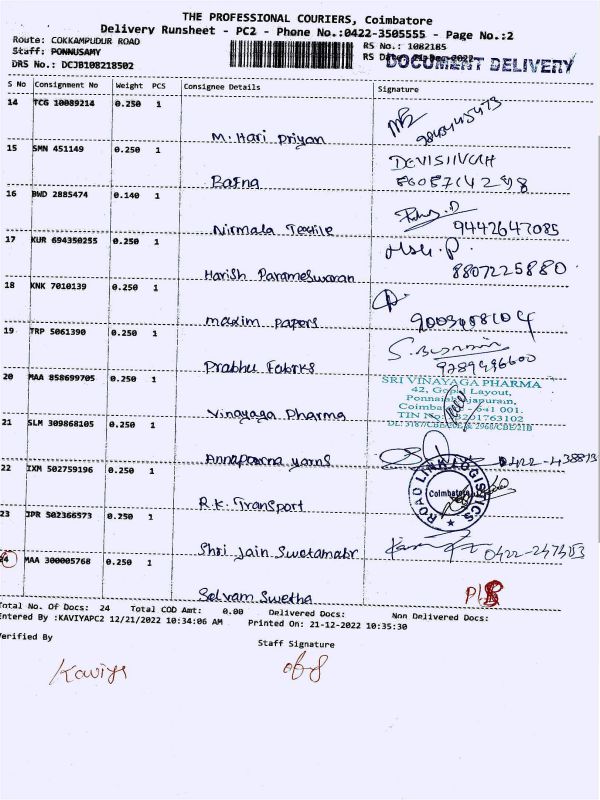 THE PROFESSIONAL COURIERS, Coimbatore
Delivery Runsheet - PC2 - Phone No.:0422-3505555 - Page No.:2
Route: COKKAMPUDUR ROAD
RS No.: 1082185
Staff: PONNUSAMY
DOCUMENT DELIVERY
DRS No.: DCJB108218502
S No Consignment No Weight PCS Consignee Details Signature
14 TCG 10089214 0.250 1 M. Hari Priyan
15 SMN 451149 0.250 1 Rafna
16 BWD 2885474 0.140 1 Nirmala Textile 9442647085
17 KUR 694350255 0.250 1 Harish Parameswaran 8807225880
18 KNK 7010139 0.250 1 maxim papers
19 TRP 5061390 0.250 1 Prabhu Fabrics
20 MAA 858699705 0.250 1 Vinayaga Pharma
SRI VINAYAGA PHARMA
Layout,
641 001.
21 SLM 309868105 0.250 1 Annapoorna yarns
22 IXM 502759196 0.250 1 R.K. Transport
ROAD LINK LOGISTICS
Coimbatore
23 JPR 502366573 0.250 1 Shri Jain Swetamabr
24 MAA 300005768 0.250 1 Selvam Swetha
Total No. Of Docs: 24 Total COD Amt: 0.00 Delivered Docs: Non Delivered Docs:
Entered By :KAVIYAPC2 12/21/2022 10:34:06 AM Printed On: 21-12-2022 10:35:30
Verified By Staff Signature
Kaviya